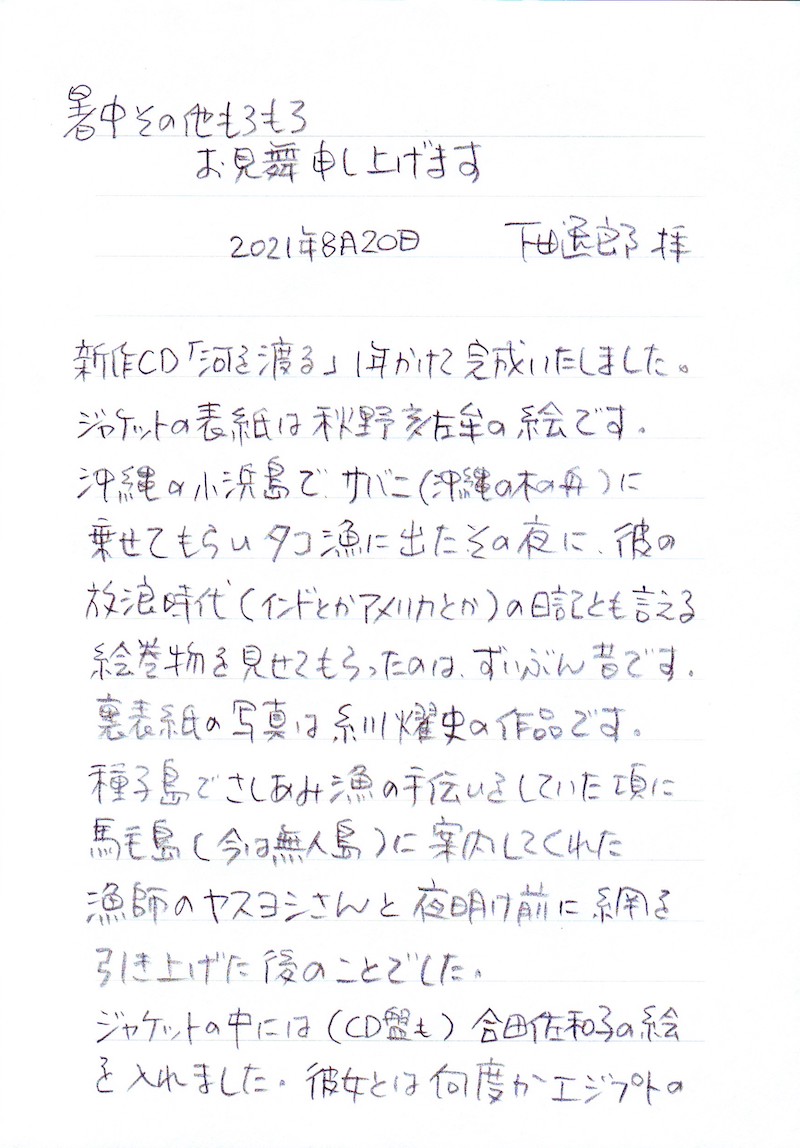 暑中その他もろもろ
お見舞申し上げます
2021年8月20日 下田逸郎 拝
新作CD「河を渡る」1年かけて完成いたしました。
ジャケットの表紙は秋野亥左牟の絵です。
沖縄の小浜島で、サバニ(沖縄の木の舟)に
乗せてもらいタコ漁に出たその夜に、彼の
放浪時代(インドとかアメリカとか)の日記とも言える
絵巻物を見せてもらったのは、ずいぶん昔です。
裏表紙の写真は糸川燿史の作品です。
種子島でさしあみ漁の手伝いをしていた頃に
馬毛島(今は無人島)に案内してくれた
漁師のヤスヨシさんと夜明け前に網を
引き上げた後のことでした。
ジャケットの中には(CD盤も)合田佐和子の絵
を入れました。彼女とは何度かエジプトの